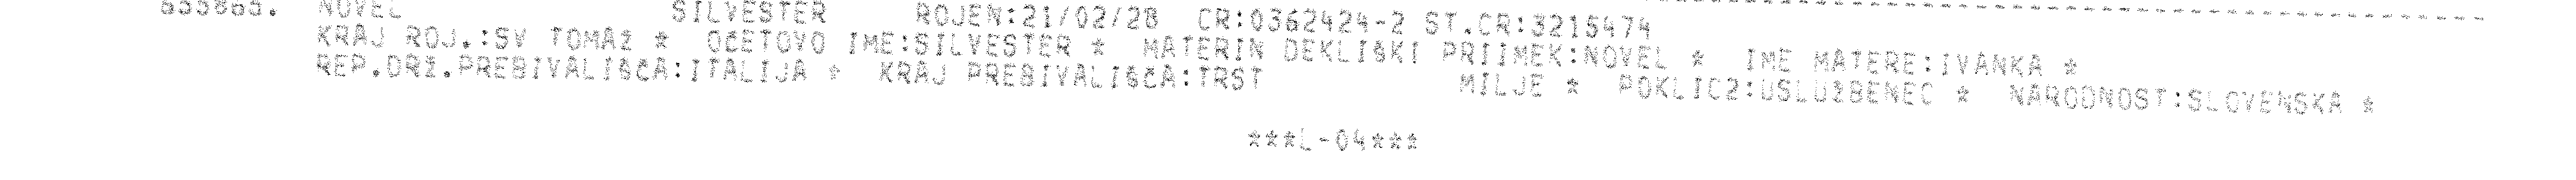 NOVEL SILVESTER ROJEN:21/02/28 CR:0362424-2 ST.CR:3215474
KRAJ ROJ.:SV TOMAŽ * OČETOVO IME:SILVESTER * MATERIN DEKLIŠKI PRIIMEK:NOVEL * IME MATERE:IVANKA *
REP.DRŽ.PREBIVALIŠČA:ITALIJA * KRAJ PREBIVALIŠČA:TRST MILJE * POKLIC2:USLUŽBENEC * NARODNOST:SLOVENSKA *
***L-04***